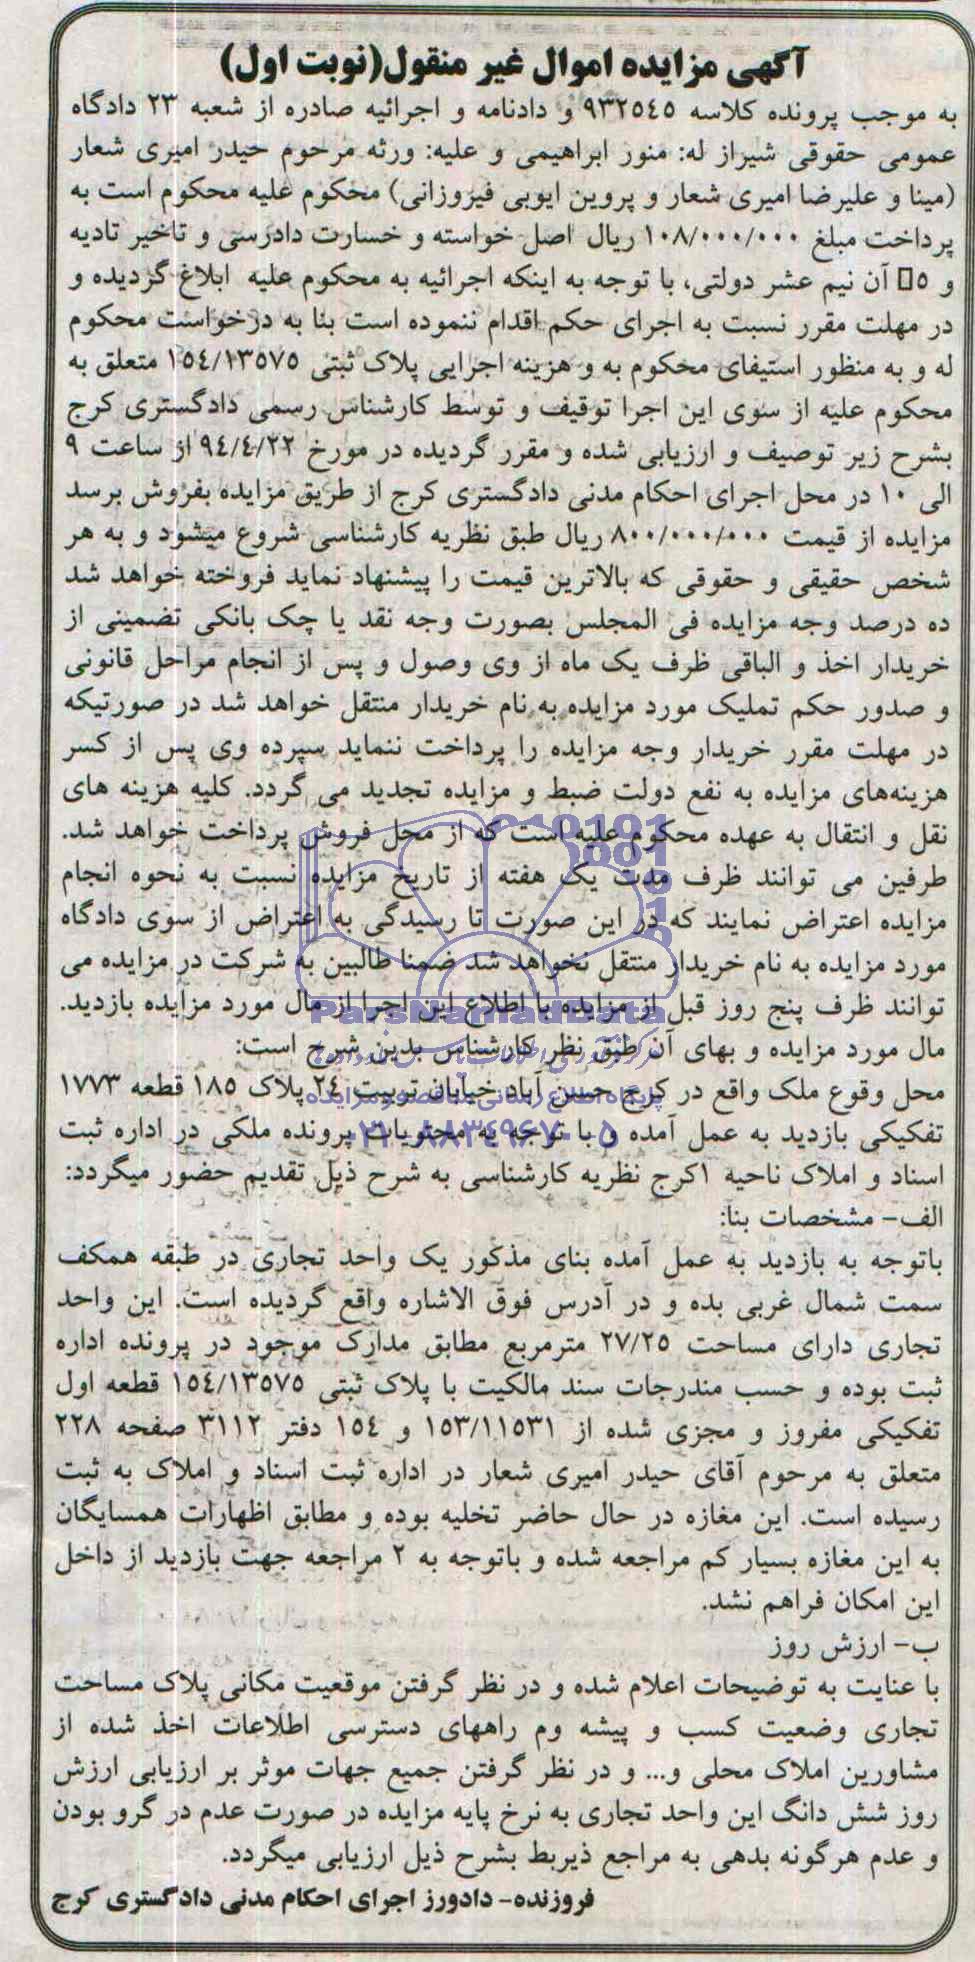 آگهی مزایده اموال غیر منقول(نوبت اول)
به موجب پرونده کلاسه ۹۳۲۵٤۵ و دادنامه و اجرائیه صادره از شعبه ۲۳ دادگاه
عمومی حقوقی شیراز له: منور ابراهیمی و علیه: ورثه مرحوم حیدر امیری شعار
(مینا و علیرضا امیری شعار و پروین ایوبی فیروزانی) محکوم علیه محکوم است به
پرداخت مبلغ ۱۰۸/۰۰۰/۰۰۰ ریال اصل خواسته و خسارت دادرسی و تاخیر تادیه
و ۵ آن نیم عشر دولتی، با توجه به اینکه اجرائیه به محکوم علیه ابلاغ گردیده و
در مهلت مقرر نسبت به اجرای حکم اقدام ننموده است بنا به درخواست محکوم
له و به منظور استیفای محکوم به و هزینه اجرایی پلاک ثبتی ۱۵٤/۱۳۵۷۵ متعلق به
محکوم علیه از سوی این اجرا توقیف و توسط کارشناس رسمی دادگستری کرج
بشرح زیر توصیف و ارزیابی شده و مقرر گردیده در مورخ ۹٤/٤/۲۲ از ساعت ۹
الی ۱۰ در محل اجرای احکام مدنی دادگستری کرج از طریق مزایده بفروش برسد
مزایده از قیمت ۸۰۰/۰۰۰/۰۰۰ ریال طبق نظریه کارشناسی شروع میشود و به هر
شخص حقیقی و حقوقی که بالاترین قیمت را پیشنهاد نماید فروخته خواهد شد
ده درصد وجه مزایده فی المجلس بصورت وجه نقد یا چک بانکی تضمینی از
خریدار اخذ و الباقی ظرف یک ماه از وی وصول و پس از انجام مراحل قانونی
و صدور حکم تملیک مورد مزایده به نام خریدار منتقل خواهد شد در صورتیکه
در مهلت مقرر خریدار وجه مزایده را پرداخت ننماید سپرده وی پس از کسر
هزینه‌های مزایده به نفع دولت ضبط و مزایده تجدید می گردد. کلیه هزینه های
نقل و انتقال به عهده محکوم علیه است که از محل فروش پرداخت خواهد شد.
طرفین می توانند ظرف مدت یک هفته از تاریخ مزایده نسبت به نحوه انجام
مزایده اعتراض نمایند که در این صورت تا رسیدگی به اعتراض از سوی دادگاه
مورد مزایده به نام خریدار منتقل نخواهد شد ضمنا طالبین به شرکت در مزایده می
توانند ظرف پنج روز قبل از مزایده با اطلاع این اجرا از مال مورد مزایده بازدید.
ParsNamadData
مال مورد مزایده و بهای آن طبق نظر کارشناس بدین شرح است:
محل وقوع ملک واقع در کرج حسن آباد خیابان تربیت ۲٤ پلاک ۱۸۵ قطعه ۱۷۷۳
پایگاه اطلاع رسانی مناقصه و مزایده
تفکیکی بازدید به عمل آمده و با توجه به محتویات پرونده ملکی در اداره ثبت
۰۲۱-۸۸۳٤۹۶۷۰-۵
اسناد و املاک ناحیه ۱کرج نظریه کارشناسی به شرح ذیل تقدیم حضور میگردد:
الف- مشخصات بنا:
باتوجه به بازدید به عمل آمده بنای مذکور یک واحد تجاری در طبقه همکف
سمت شمال غربی بده و در آدرس فوق الاشاره واقع گردیده است. این واحد
تجاری دارای مساحت ۲۷/۲۵ مترمربع مطابق مدارک موجود در پرونده اداره
ثبت بوده و حسب مندرجات سند مالکیت با پلاک ثبتی ۱۵٤/۱۳۵۷۵ قطعه اول
تفکیکی مفروز و مجزی شده از ۱۵۳/۱۱۵۳۱ و ۱۵٤ دفتر ۳۱۱۲ صفحه ۲۲۸
متعلق به مرحوم آقای حیدر امیری شعار در اداره ثبت اسناد و املاک به ثبت
رسیده است. این مغازه در حال حاضر تخلیه بوده و مطابق اظهارات همسایگان
به این مغازه بسیار کم مراجعه شده و باتوجه به ۲ مراجعه جهت بازدید از داخل
این امکان فراهم نشد.
ب- ارزش روز
با عنایت به توضیحات اعلام شده و در نظر گرفتن موقعیت مکانی پلاک مساحت
تجاری وضعیت کسب و پیشه وم راههای دسترسی اطلاعات اخذ شده از
مشاورین املاک محلی و... و در نظر گرفتن جمیع جهات موثر بر ارزیابی ارزش
روز شش دانگ این واحد تجاری به نرخ پایه مزایده در صورت عدم در گرو بودن
و عدم هرگونه بدهی به مراجع ذیربط بشرح ذیل ارزیابی میگردد.
فروزنده- دادورز اجرای احکام مدنی دادگستری کرج